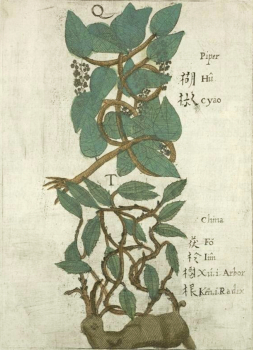 Q
Piper
胡 Hû
椒 cyao
T
China
茯 Fô
苓 lim
樹 Xú. i. Arbor
根 Ken. i. Radix